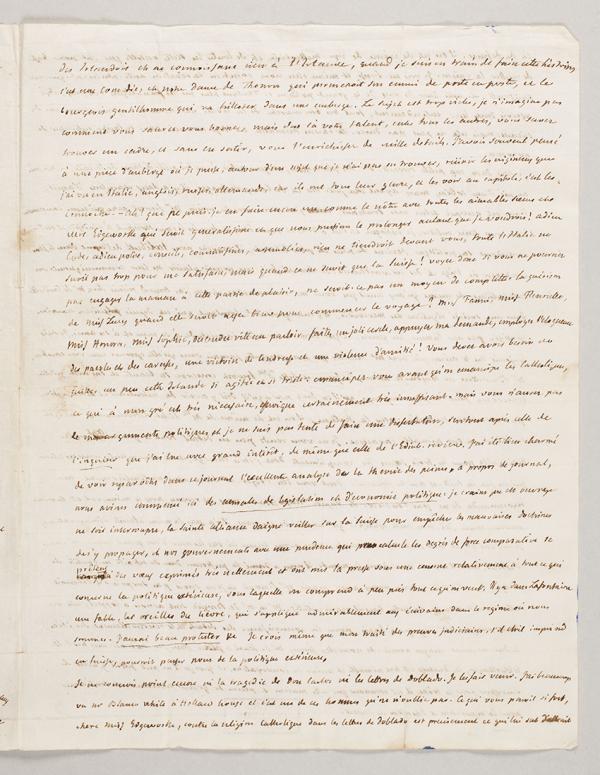 des Irlandois et ne connoissant rien à l'Irlande, quand je suis en train de faire cette histoire,
c'est une comédie, et notre dame de Thonon qui promenoit son ennui de poste en poste, et le
bourgeois gentilhomme qui va briller dans une auberge. Le sujet est trop riche, je n'imagine pas
comment vous saurez vous borner, mais c'est là votre talent, entre tous les autres, vous savez
trouver un cadre, et sans en sortir, vous l'enrichissez de mille details. J'avois souvent pensé
à une piece d'auberge où je puisse, autour d'un sujet que je n'ai pas su trouver, réunir les originaux que
j'ai vus en Italie, anglois, russes, allemands, car ils ont tous leur genre, et les voir au capitole, c'est les
connoitre. — Ah! que ne puis-je en faire encore une comme la nôtre avec toutes les aimables sœurs chere
Miss Edgeworth que seriez généralissime et que nous pussions le prolonger autant que je voudrois! adieu
Codes, adieu polices, conseils, commissions, assemblées, rien ne tiendroit devant vous, toute l'Italie ne
seroit pas trop pour me satisfaire mais quand ce ne seroit que la Suisse! voyez donc si vous ne pourriez
pas engager la maman à cette partie de plaisir, ne seroit-ce pas un moyen de completter la guérison
de Miss Lucy quand elle seroit assez bien pour commencer le voyage? Miss Fanny, Miss Harriet,
Miss Honora, Miss Sophie, descendez vite au parloir, faites un joli cercle, appuyez ma demande, employez l'éloquence
des paroles et des caresses, une victoire de tendresse et une violence d'amitié! Vous devez avoir besoin de
quitter un peu cette Irlande si agitée et si triste. — émancipez-vous avant qu'on émancipe les Catholiques,
ce qui à mon gré est très nécessaire, quoique certainement très insuffisant. mais vous n'aurez pas
de mes arguments politiques, et je ne suis pas tenté de faire une dissertation, surtout après celle de
l'inquirer que j'ai lue avec grand intérêt, de même que celle de l'Edinb. review. J'ai été bien charmé
de voir reparoître dans ce journal l'excellent analyse de la théorie des peines, à propos de journal,
nous avions commencé ici des annales de législation et d'économie politique: je crains que cet ouvrage
ne soit interrompu, la Sainte Alliance daigne veiller sur la Suisse pour empêcher les mauvaises doctrines
de s'y propager, et nos gouvernements avec une prudence qui calcule les degrés de force comparative se
prêtent à des vœux exprimés très nettement et ont mis la presse sous une censure relativement à tout ce qui
concerne la politique extérieure, sous laquelle on comprend à peu près tout ce qu'on veut. Il y a dans Lafontaine
une fable, les oreilles du lièvre, qui s'applique admirablement aux écrivains dans le régime où nous
sommes. J'aurai beau protester &c Je crois même que mon traité des preuves judiciaires, s'il étoit imprimé
en Suisse, pourroit passer pour de la politique extérieure.
Je ne connois point encore ni la tragédie de Don Carlos ni les lettres de Doblado. Je les fais venir. J'ai beaucoup
vu Mr Blanco White à Holland house et c'est un de ces hommes qu'on n'oublie pas. Ce qui vous paroit si fort,
chere Miss Edgeworth, contre la religion catholique dans les lettres de Doblado est precisement ce qui lui sert